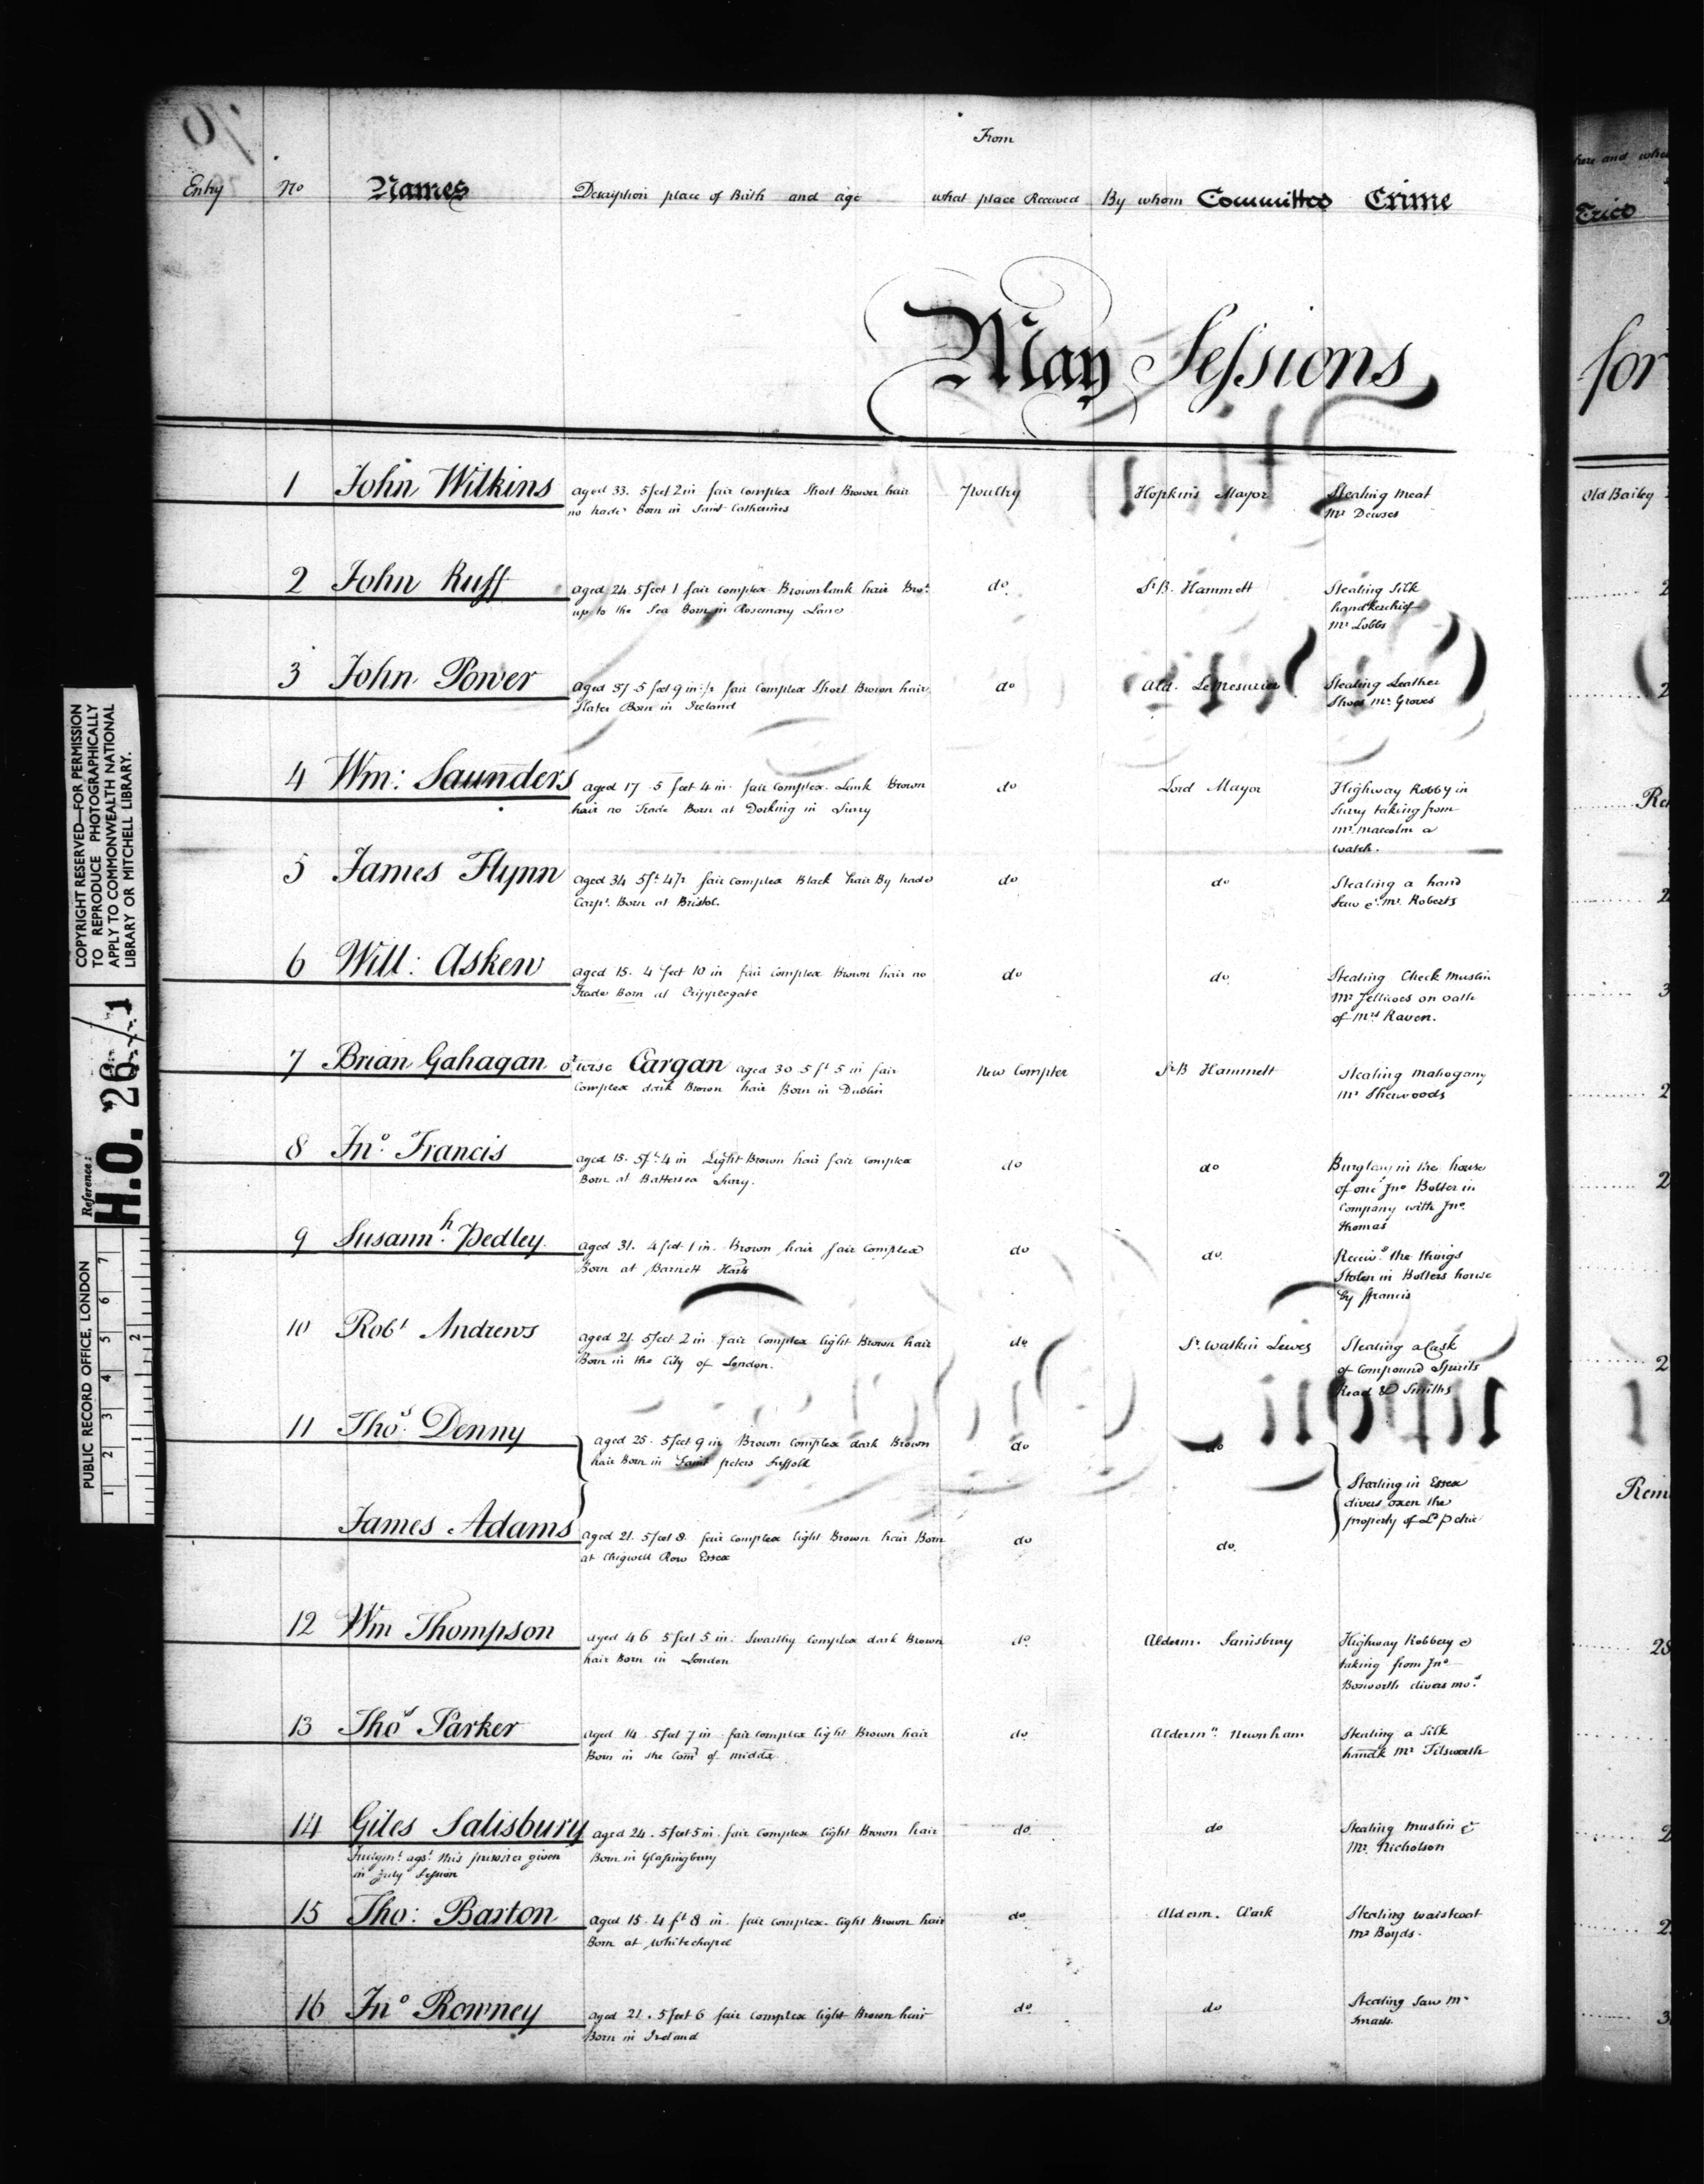 From
Entry No Names Description place of Birth and age what place Received By whom Committed Crime
May Sessions
1 John Wilkins aged 33. 5 feet 2 in fair Complex Short Brown hair Poultry Hopkins Mayor Stealing meat
no trade Born in Saint Catherines Mr Dewses
2 John Ruff aged 24. 5 feet 1 fair Complex Brown lank hair Bro.t do. Sr B. Hammett Stealing Silk
up to the Sea Born in Rosemary Lane handkerchief
Mr Lobbs
3 John Power aged 37 5 feet 9 in 1/2 fair Complex Short Brown hair do Ald. LeMesurier Stealing Leather
Slater Born in Ireland Shoes Mr Groves
4 Wm: Saunders aged 17 5 feet 4 in. fair Complex. Lank Brown do Lord Mayor Highway Robby in
hair no Trade Born at Dorking in Surry Surry taking from
Mr Malcolm a
watch.
5 James Flynn aged 34 5 ft 4 1/2 fair Complex Black hair By trade do do Stealing a hand
Carpr. Born at Bristol. Saw &c Mr Roberts
6 Will: Askew aged 15. 4 feet 10 in fair Complex Brown hair no do do. Stealing Check Muslin
Trade Born at Cripplegate Mr Jellicoes on oath
of Mrs Raven.
7 Brian Gahagan o'twise Cargan aged 30 5 ft 5 in fair New Compter Sr B Hammett Stealing mahogany
Complex dark Brown hair Born in Dublin Mr Sherwoods
8 Jno. Francis aged 15. 5 ft. 4 in Light Brown hair fair Complex do do Burglary in the house
Born at Battersea Surry. of one Jno Bolter in
Company with Jno.
Thomas
9 Susannh. Pedley aged 31. 4 feet 1 in. Brown hair fair Complex do do. Receivg the things
Born at Barnett Harts Stolen in Bolters house
by ffrancis
10 Robt Andrews aged 21. 5 feet 2 in. fair Complex light Brown hair do Sr. Watkin Lewes Stealing a Cask
Born in the City of London. of Compound Spirits
Read & Smiths
11 Thos. Denny aged 25. 5 feet 9 in Brown Complex dark Brown do do
hair Born in Saint peters Suffolk Stealing in Essex
divers oxen the
James Adams aged 21. 5 feet 8. fair Complex light Brown hair Born do do. property of Ld
at Chigwell Row Essex
12 Wm Thompson aged 46 5 feet 5 in. Swarthy Complex dark Brown do. Alderm. Sainsbury Highway Robbery &
hair Born in London taking from Jno
Bosworth divers mo.s
13 Thos Parker aged 14. 5 feet 7 in. fair complex light Brown hair do Alderm.n Newnham Stealing a Silk
Born in the Com of middx. handk Mr Tilsworth
14 Giles Salisbury aged 24. 5 feet 5 in. fair Complex light Brown hair do. do Stealing Muslin &c
Judgmt. agst. this prisoner given Born in Glassingbury Mr. Nicholson
in July Session
15 Tho: Barton aged 15. 4 ft 8 in. fair complex. light Brown hair do Alderm. Clark Stealing waistcoat
Born at Whitechapel Mr Boyds.
16 Jno Rowney aged 21. 5 feet 6 fair complex light Brown hair do. do Stealing Saw Mr
Born in Ireland Smarts.
Tried
for
Old Bailey
COPYRIGHT RESERVED—FOR PERMISSION
TO REPRODUCE PHOTOGRAPHICALLY
APPLY TO COMMONWEALTH NATIONAL
LIBRARY OR MITCHELL LIBRARY.
Reference:
H.O. 26/1
PUBLIC RECORD OFFICE, LONDON
1 2 3 4 5 6 7
1 2